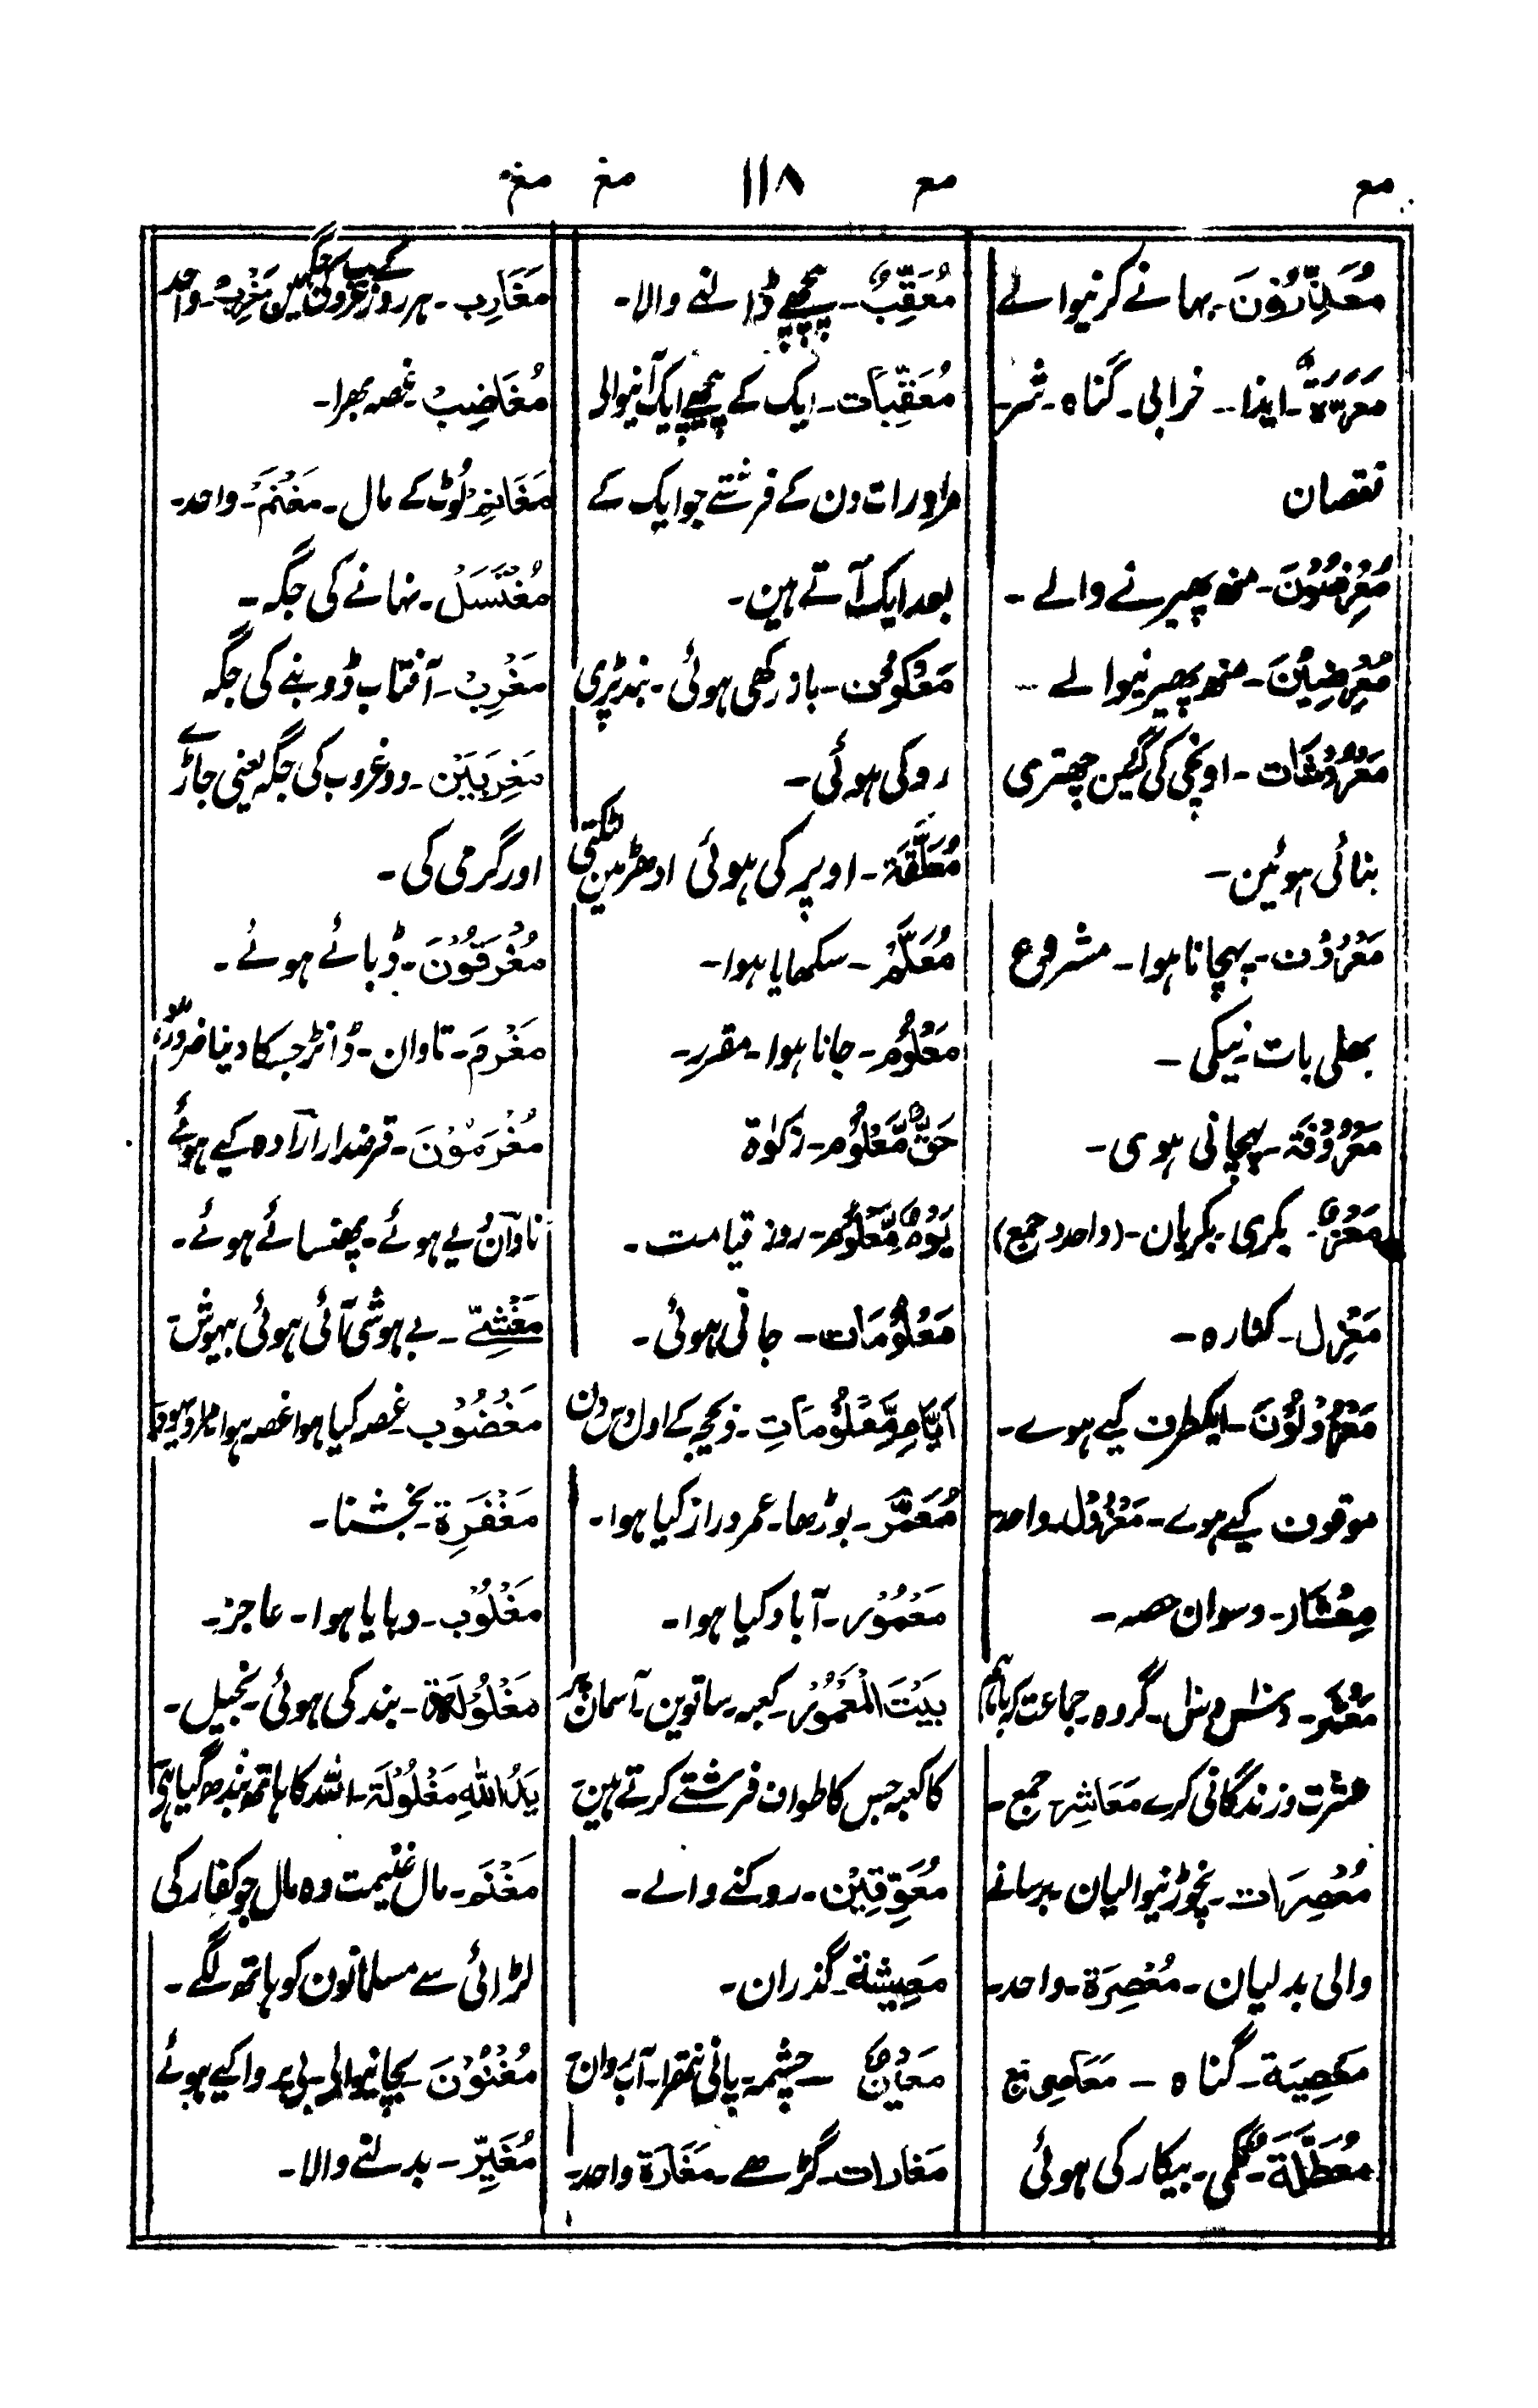 مع مع ١١٨ مغ مغ
مُعَذِّرُوْنَ۔ بہانے کرنیوالے
مَعَرَّةٌ۔ ایذا۔ خرابی۔ گناہ۔ شر۔
نقصان
مُعْرِضُوْنَ۔ منھ پھیرنے والے۔
مُعْرِضِيْنَ۔ منھ پھیرنیوالے۔
مَعْرُوْشَات۔ اونچی کی گئین چھتری
بنائی ہوئین۔
مَعْرُوْف۔ پہچانا ہوا۔ مشروع
بھلی بات۔ نیکی۔
مَعْرُوْفَة۔ پہچانی ہوی۔
مَعْزٌ۔ بکری۔ بکریان۔ (واحد وجمع)
مَعْزِل۔ کنارہ۔
مَعْزُوْلُوْنَ۔ ایکطرف کیے ہوے۔
موقوف کیے ہوے۔ مَعْزُوْل۔ واحد۔
مِعْشَار۔ دسوان حصہ۔
مَعْشَر۔ دس دس۔ گروہ۔ جماعت کہ باہم
عشرت و زندگانی کرے مَعَاشِر جمع۔
مُعْصِرَات۔ نچوڑنیوالیان۔ برسانے
والی بدلیان۔ مُعْصِرَة۔ واحد۔
مَعْصِيَة۔ گناہ ۔ مَعَاصِی جمع
مُعَطَّلَةٌ۔ نکمی۔ بیکار کی ہوئی
مُعَقِّبٌ۔ پیچھے ڈالنے والا۔
مُعَقِّبَات۔ ایک کے پیچھے ایک آنیوالی
مراد رات دن کے فرشتے جو ایک کے
بعد ایک آتے ہین۔
مَعْكُوْف۔ باز رکھی ہوئی۔ بند پڑی
روکی ہوئی۔
مُعَلَّقَة۔ اوپر کی ہوئی ادھڑ مین لٹکتی
مُعَلَّمْ۔ سکھایا ہوا۔
مَعْلُوْم۔ جانا ہوا۔ مقرر۔
حَقٌّ مَّعْلُوْم۔ زکوٰة
يَوْمٍ مَّعْلُوْم۔ روز قیامت۔
مَعْلُوْمَات۔ جانی ہوئی۔
اَيَّامٍ مَّعْلُوْمَاتٍ۔ ذیحجہ کے اول دس دن
مُعَمَّر۔ بوڑھا۔ عمر دراز کیا ہوا۔
مَعْمُوْر۔ آباد کیا ہوا۔
بَيْتَ الْمَعْمُوْر۔ کعبہ۔ ساتوین آسمان پر
کا کعبہ جس کا طواف فرشتے کرتے ہین
مُعَوِّقِيْن۔ روکنے والے۔
مَعِيْشَة۔ گذران۔
مَعِيْنٌ ۔ چشمہ۔ پانی نتھرا۔ آب روان
مَغَارَات۔ گڑھے۔ مَغَارَة واحد۔
مَغَارِب۔ ہر روز غروب کے جگہین مَغْرِبْ۔ واحد
مُغَاضِبْ غصہ بھرا۔
مَغَانِمْ لُوٹ کے مال۔ مَغْنَمْ۔ واحد۔
مُغْتَسَلْ۔ نہانے کی جگہ۔
مَغْرِبْ۔ آفتاب ڈوبنے کی جگہ
مَغْرِبَيْن۔ دو غروب کی جگہ یعنی جاڑے
اور گرمی کی۔
مُغْرَقُوْنَ۔ ڈبائے ہوئے۔
مَغْرَم۔ تاوان۔ ڈانڑ جسکا دینا ضرور ہو
مُغْرَمُوْنَ۔ قرضدار کیے ہوئے
تاوان لیے ہوئے۔ پھنسائے ہوئے۔
مَغْشِيّ۔ بے ہوشی آئی ہوئی بیہوش
مَغْضُوْب۔ غصہ کیا ہوا غصہ ہوا مراد یہود
مَغْفِرَة۔ بخشنا۔
مَغْلُوْب۔ دبایا ہوا۔ عاجز۔
مَغْلُوْلَة۔ بند کی ہوئی۔ بخیل۔
يَدُ اللهِ مَغْلُوْلَة۔ اللہ کا ہاتھ بندھ گیا ہی
مَغْنَم۔ مال غنیمت وہ مال جو کفار کی
لڑائی سے مسلمانون کو ہاتھ لگے۔
مُغْنُوْنَ۔ بچانیوالے۔ بے پروا کیے ہوئے
مُغَيِّر۔ بدلنے والا۔